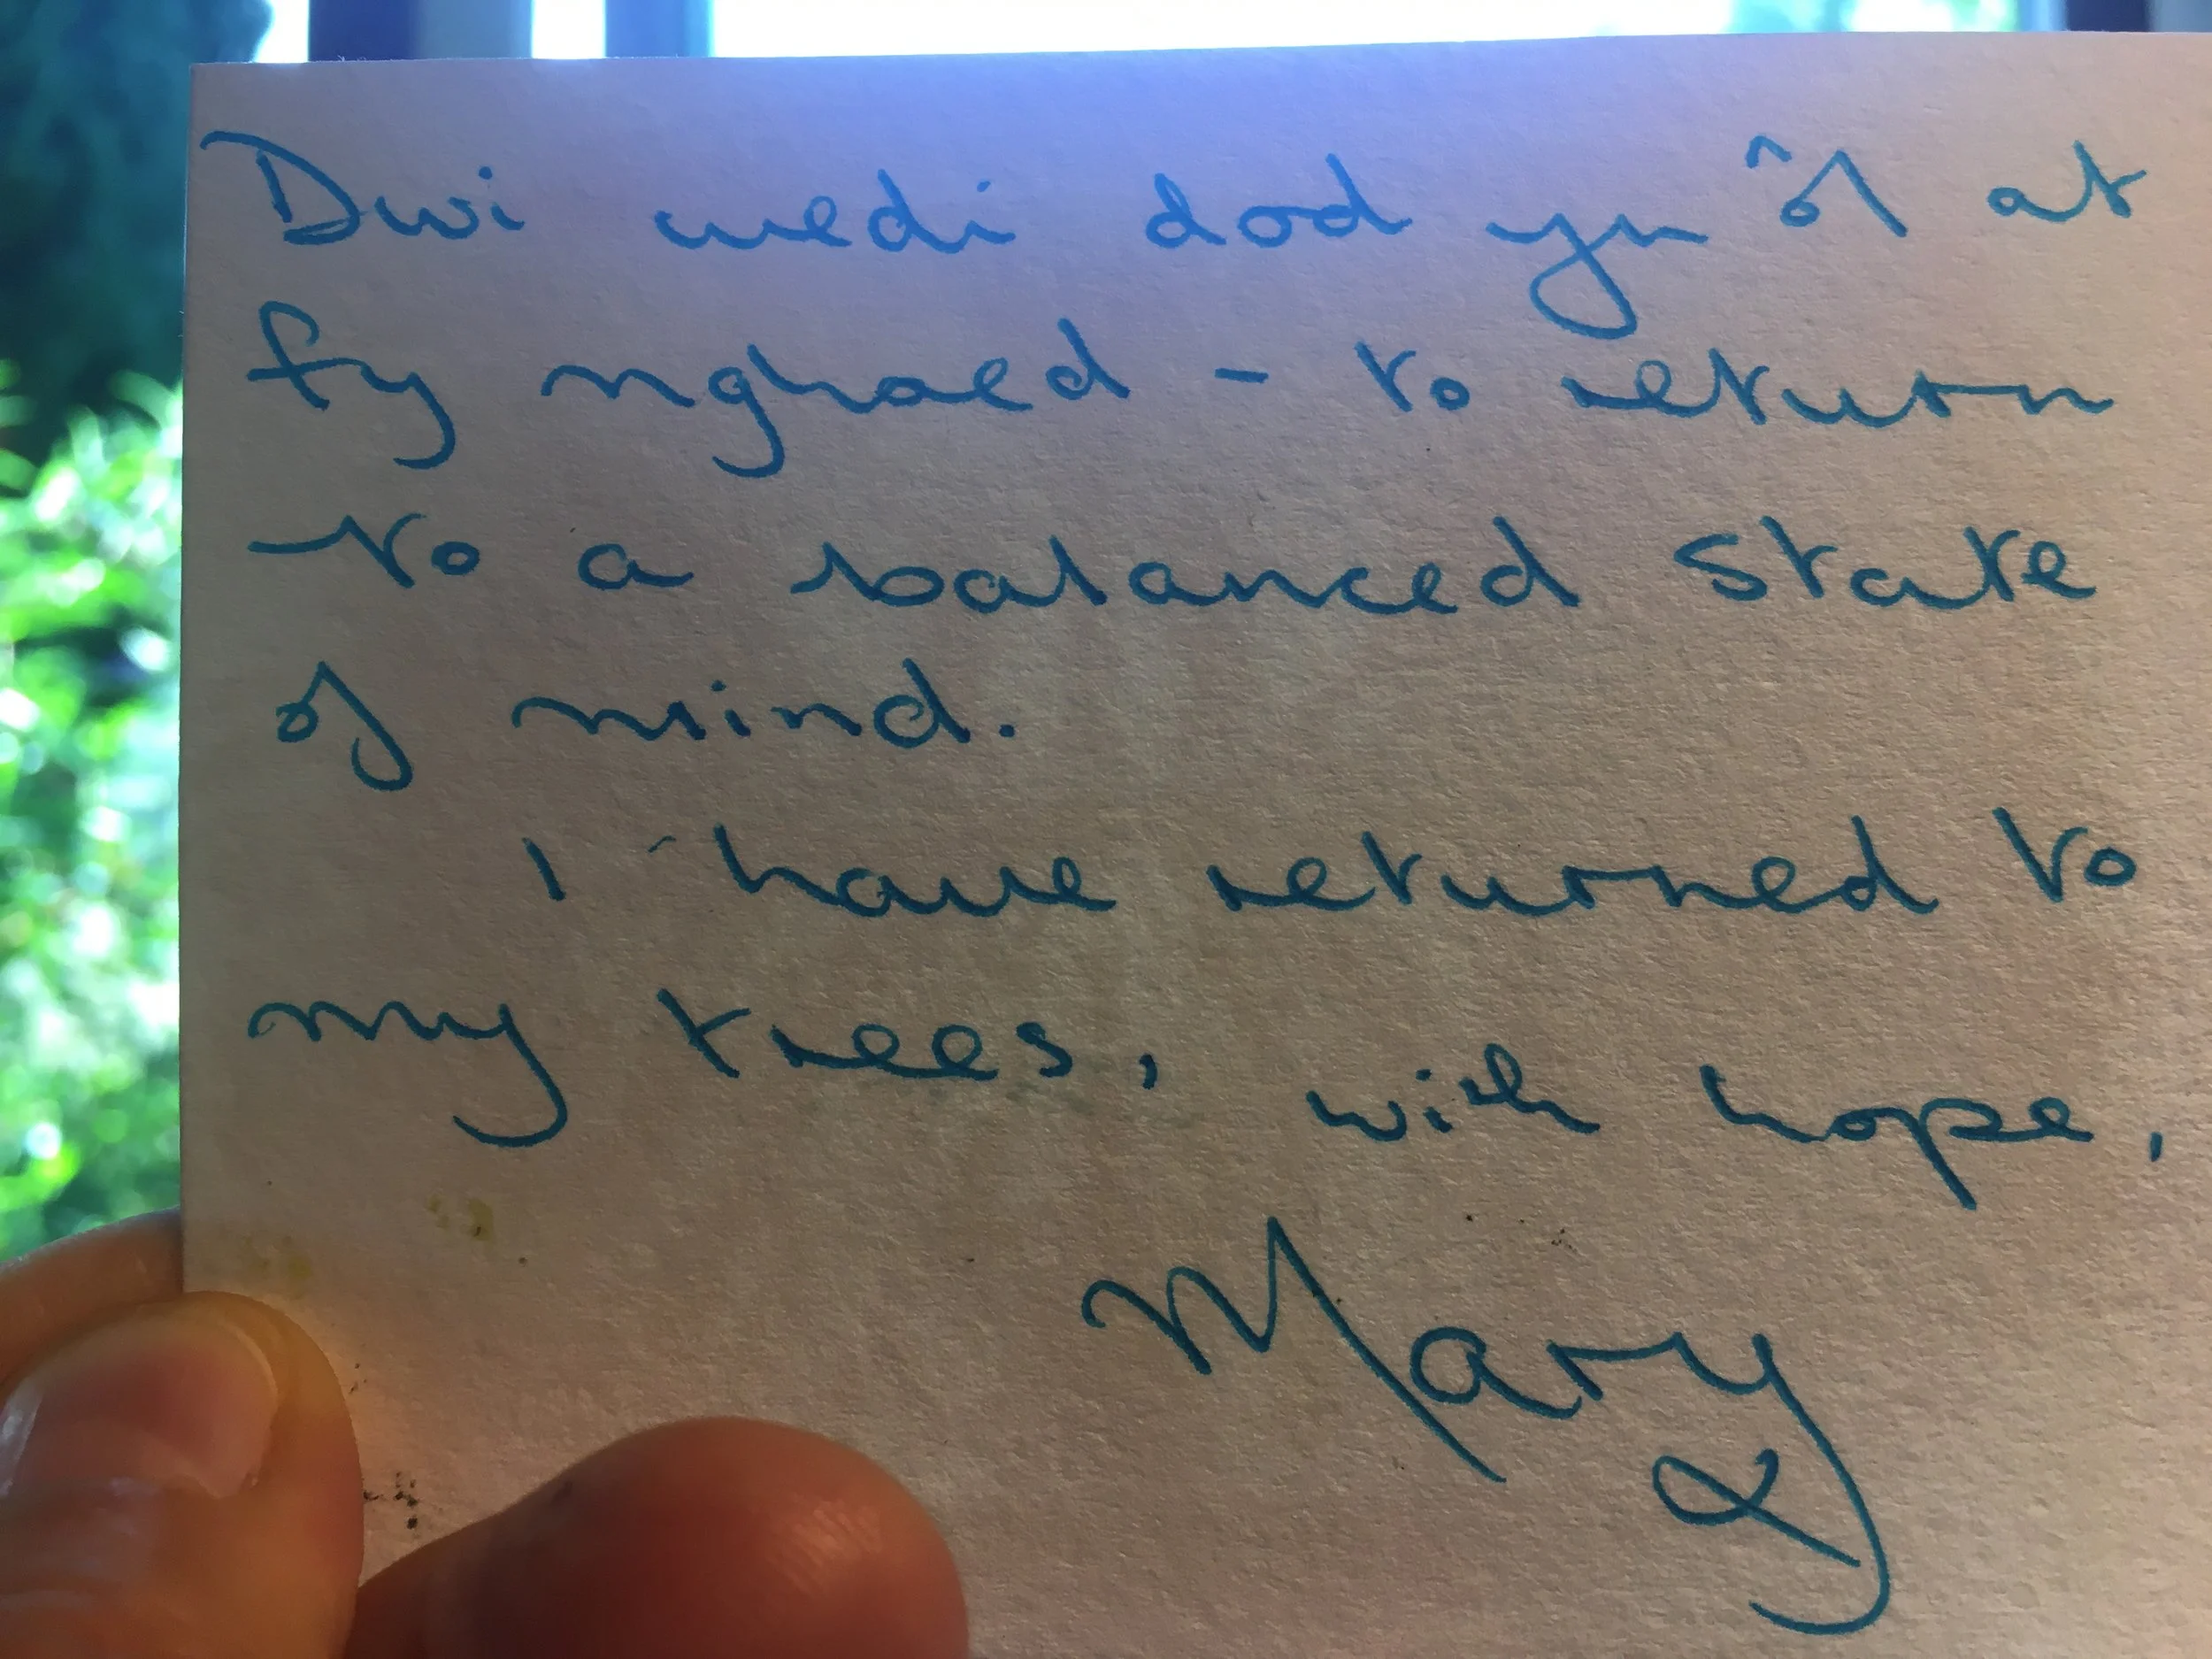 Dwi wedi dod yn ôl at
fy nghoed - to return
to a balanced state
of mind.
I have returned to
my trees, with hope,
Mary
x